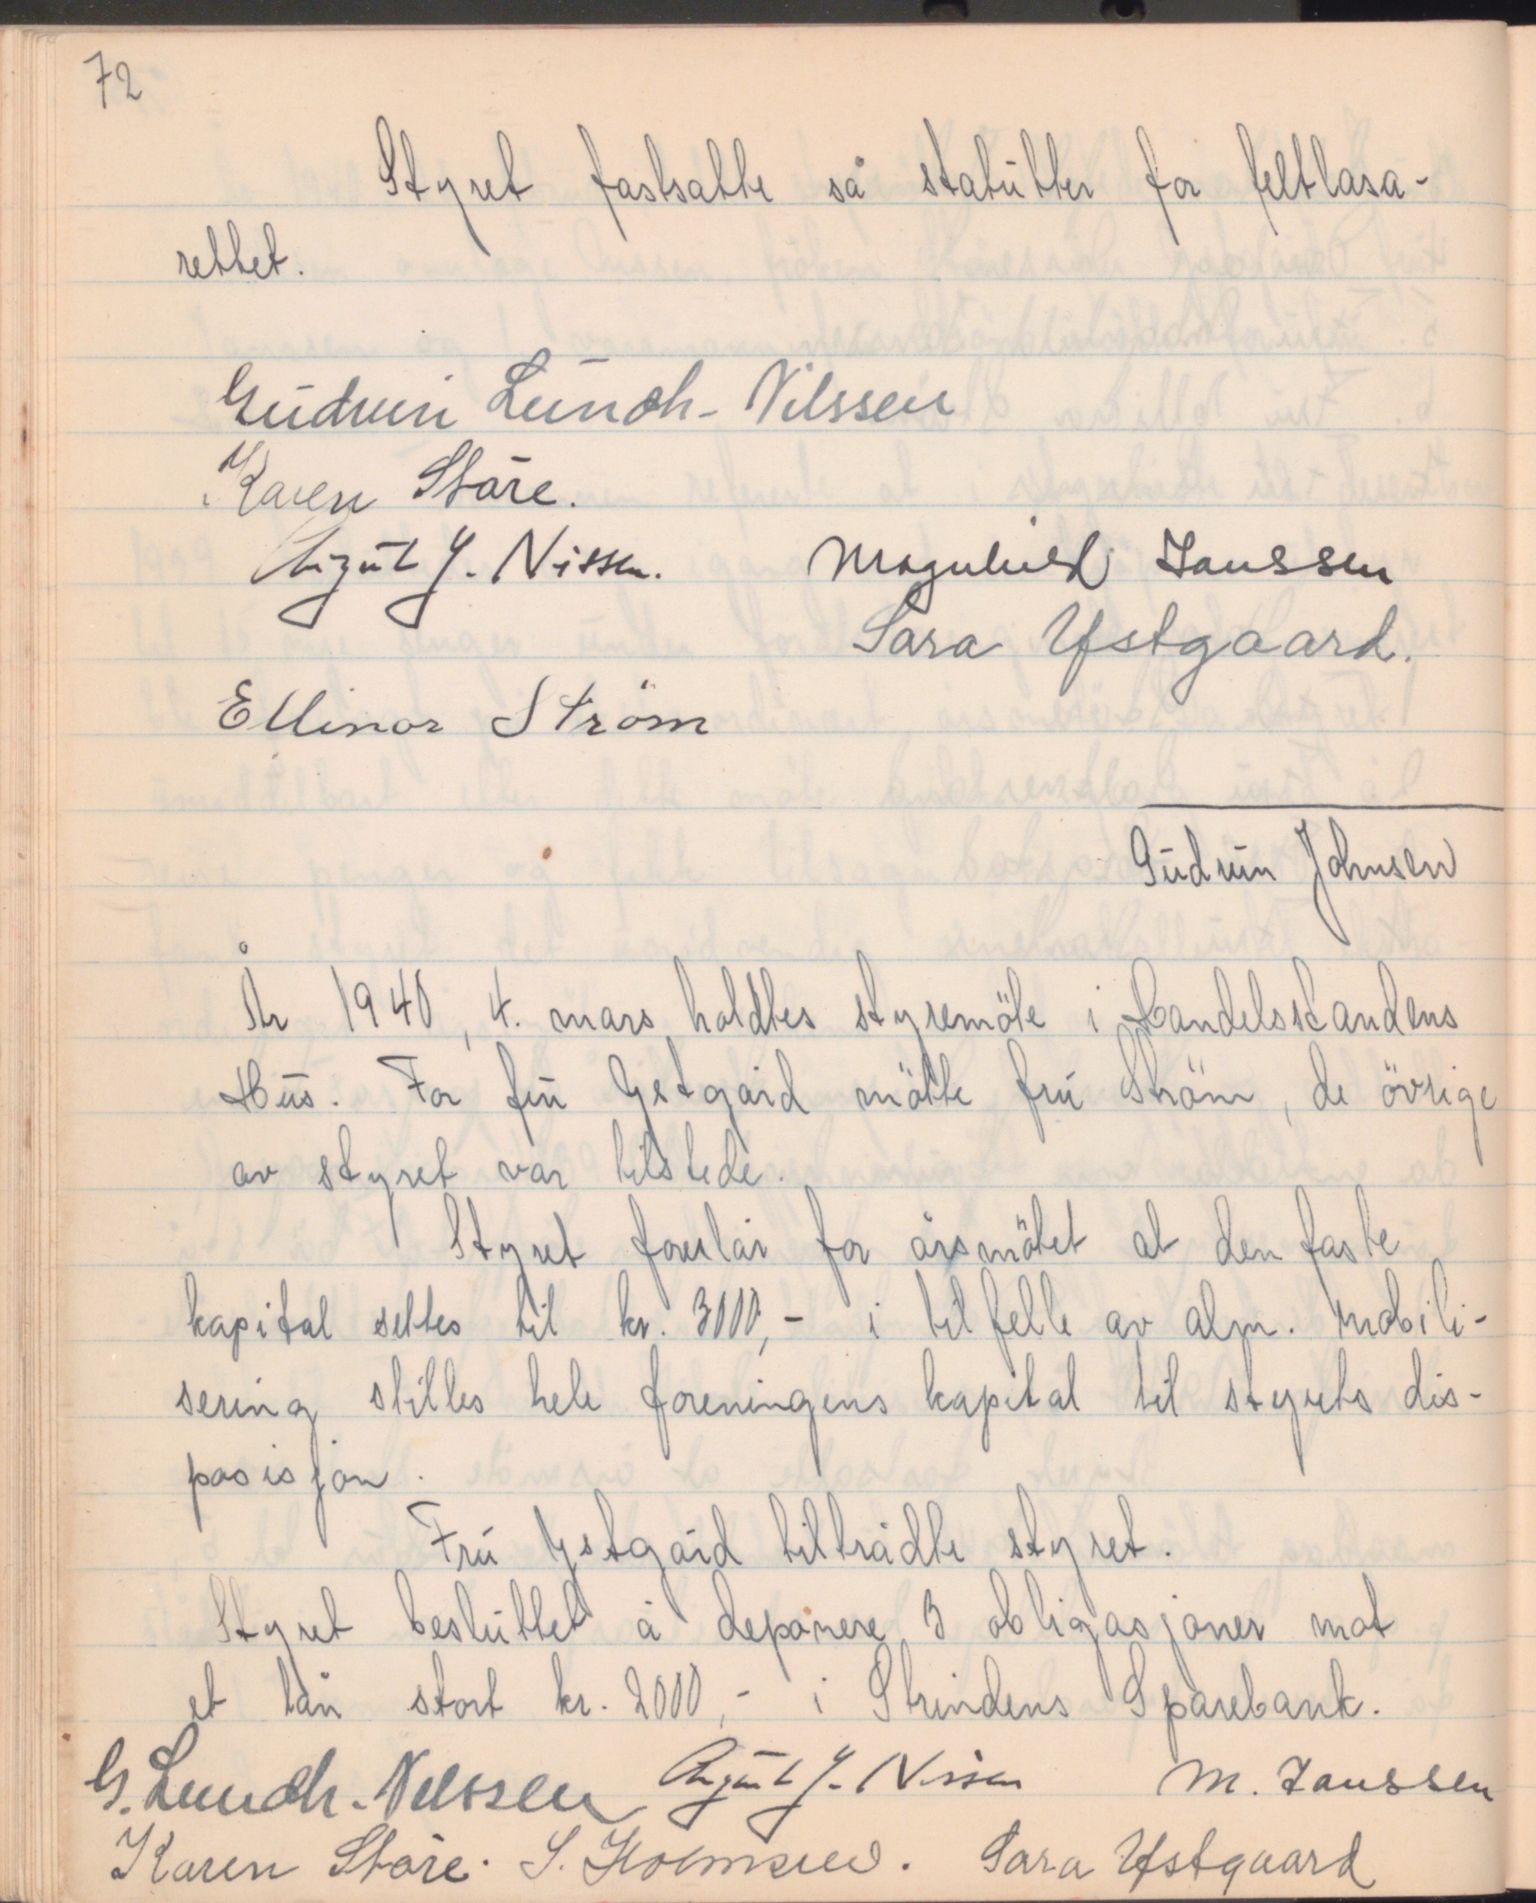 72
Styret fastsatte så statutter for feltlasa-
rettet.
Gudrun Lundh-Nilssen
Karen Støre.
August Y. Nissen. Magnhild Janssen
Sara Ystgaard.
Ellinor Ström
Gudrun Johnsen
År 1940, 4. mars holdtes styremöte i Handelsstandens
Hus. For fru Ystgård mötte fru Ström, de övrige
av styret var tilstede.
Styret foreslår for årsmötet at den faste
kapital settes til kr. 3000,- i tilfelle av alm. mobili-
sering stilles hele foreningens kapital til styrets dis-
posisjon.
Fru Ystgård tiltrådte styret.
Styret besluttet å deponere 3 obligasjoner mot
et lån stort kr. 2000,- i Strindens Sparebank.
G. Lundh-Nilssen August Y. Nissen M. Janssen
Karen Støre. S. Holmsen. Sara Ystgaard